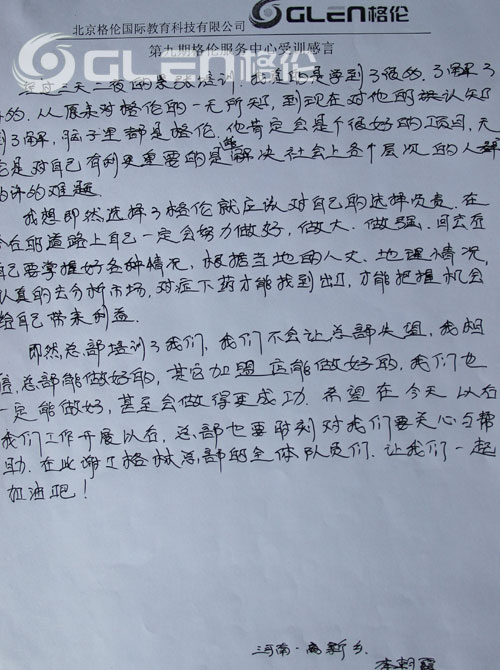 北京格伦国际教育科技有限公司 GLEN格伦
第九期格伦服务中心受训感言
GLEN格伦
三天二夜的紧张培训. 我真的是学到了很多. 了解了
的. 从原来对格伦的一无所知, 到现在对他的认知
到了解, 脑子里都是格伦. 他肯定会是个很好的项目, 无
论是对自己有利更重要的是能解决社会上各个层次的人群
的难题.
我想即然选择了格伦就应该对自己的选择负责. 在
今后的道路上自己一定会努力做好, 做大. 做强. 回去后
自己要掌握好各种情况, 根据当地的人文. 地理情况,
认真的去分析市场, 对症下药才能找到出口, 才能把握机会
给自己带来利益.
即然总部培训了我们, 我们不会让总部失望, 我相
信, 总部能做好的, 其它加盟店能做好的, 我们也
一定能做好, 甚至会做得更成功. 希望在今天以后
我们工作开展以后, 总部也要时刻对我们要关心与帮
助. 在此谢了格林总部的全体队员们. 让我们一起
加油吧!
河南·新乡.
李朝霞